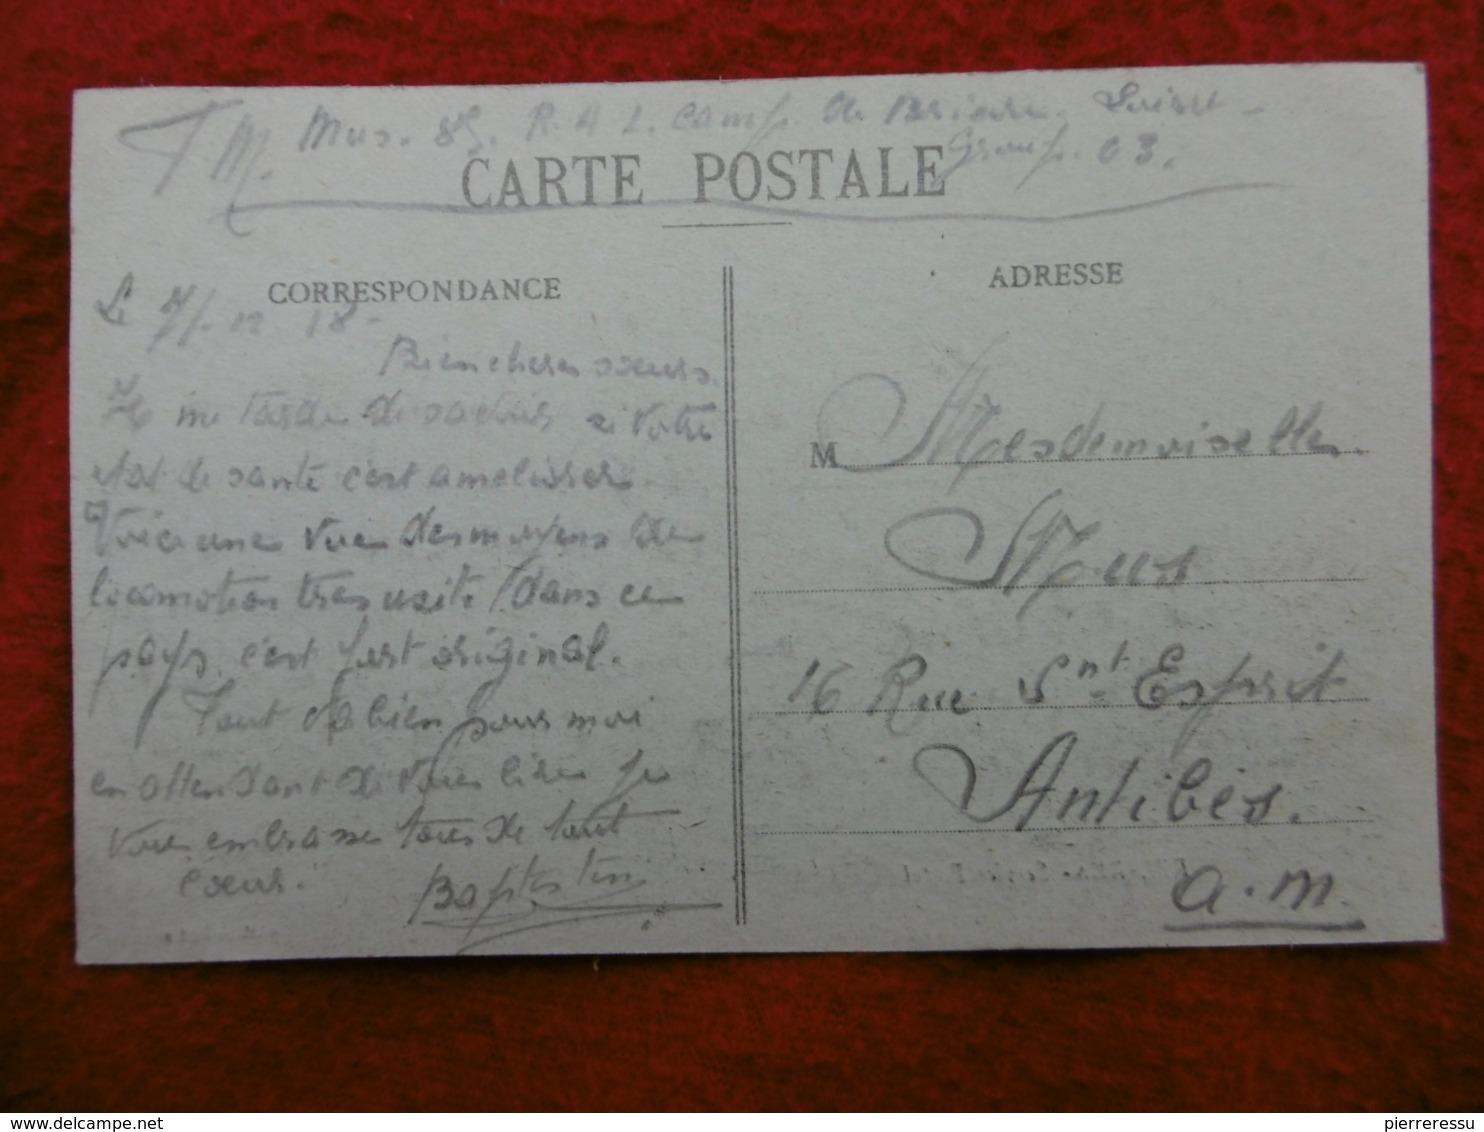 F M. Mus. 85. R. A L. Camp. de Briare. Loiret -
Group. 03.
CARTE POSTALE
CORRESPONDANCE
ADRESSE
Le 7/. 12 18 -
Bien cheres sœurs.
Il me tarde de savoir si votre
etat de santé c'est ameliorer.
Voici une vue des moyens de
locomotion tres usité dans ce
pays, c'est fort original.
Tout va bien pour moi
en attendant de vous lire je
vous embrasse tous de tout
cœur.
Baptistin
M Mesdemoiselles
Mus
16 Rue Snt Esprit
Antibes.
a. m.
delcampe.net
pierreressu